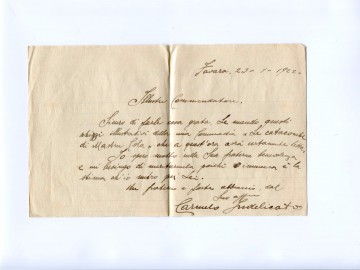 Favara, 23-1-1922.
Illustre Commendatore,
Sicuro di farle cosa grata Le mando, questi
illustrativi della mia Commedia "Le catacombe
di Mastru Cola", che a quest'ora avrà certamente letto.
Io spero molto nella Sua fraterna benevolenza
e mi lusingo di meritarmela poiché immensa è la
stima ch'io nutro per Lei.
Un fraterno e forte abbraccio dal
Suo aff.
Carmelo Indelicato